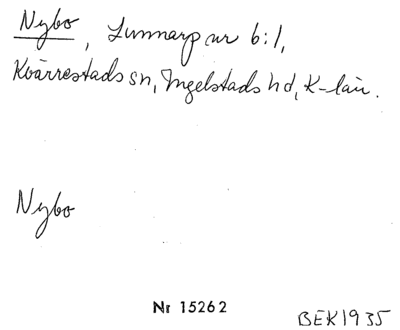 Nybo, Lunnarp nr 6:1,
Kvärrestads sn, Ingelstads hd, K-län.
Nybo
Nr 15262
BEK1935